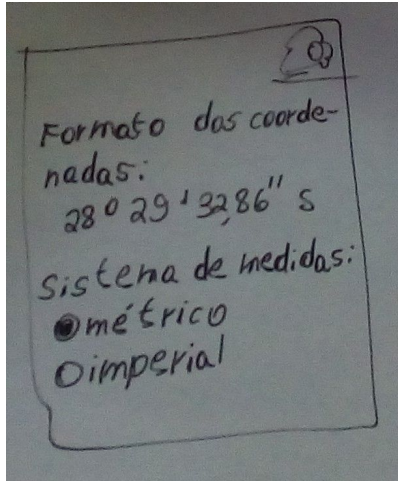 Formato das coorde-
nadas:
28° 29' 32,86" S
Sistema de medidas:
métrico
imperial